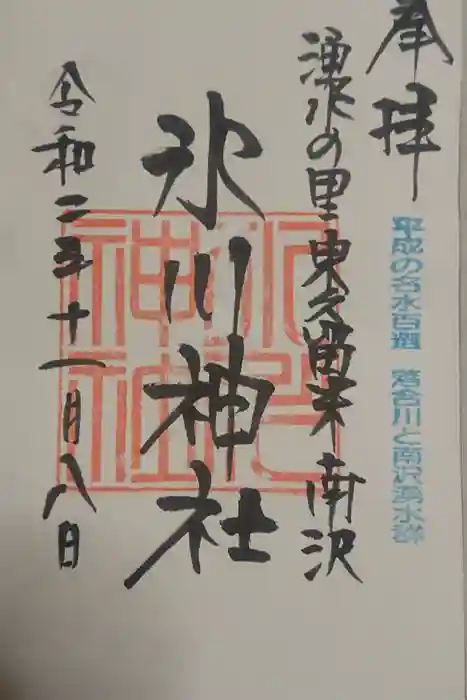 奉拝
平成の名水百選 落合川と南沢湧水群
湧水の里 東久留米 南沢
氷川神社
令和二年十一月八日